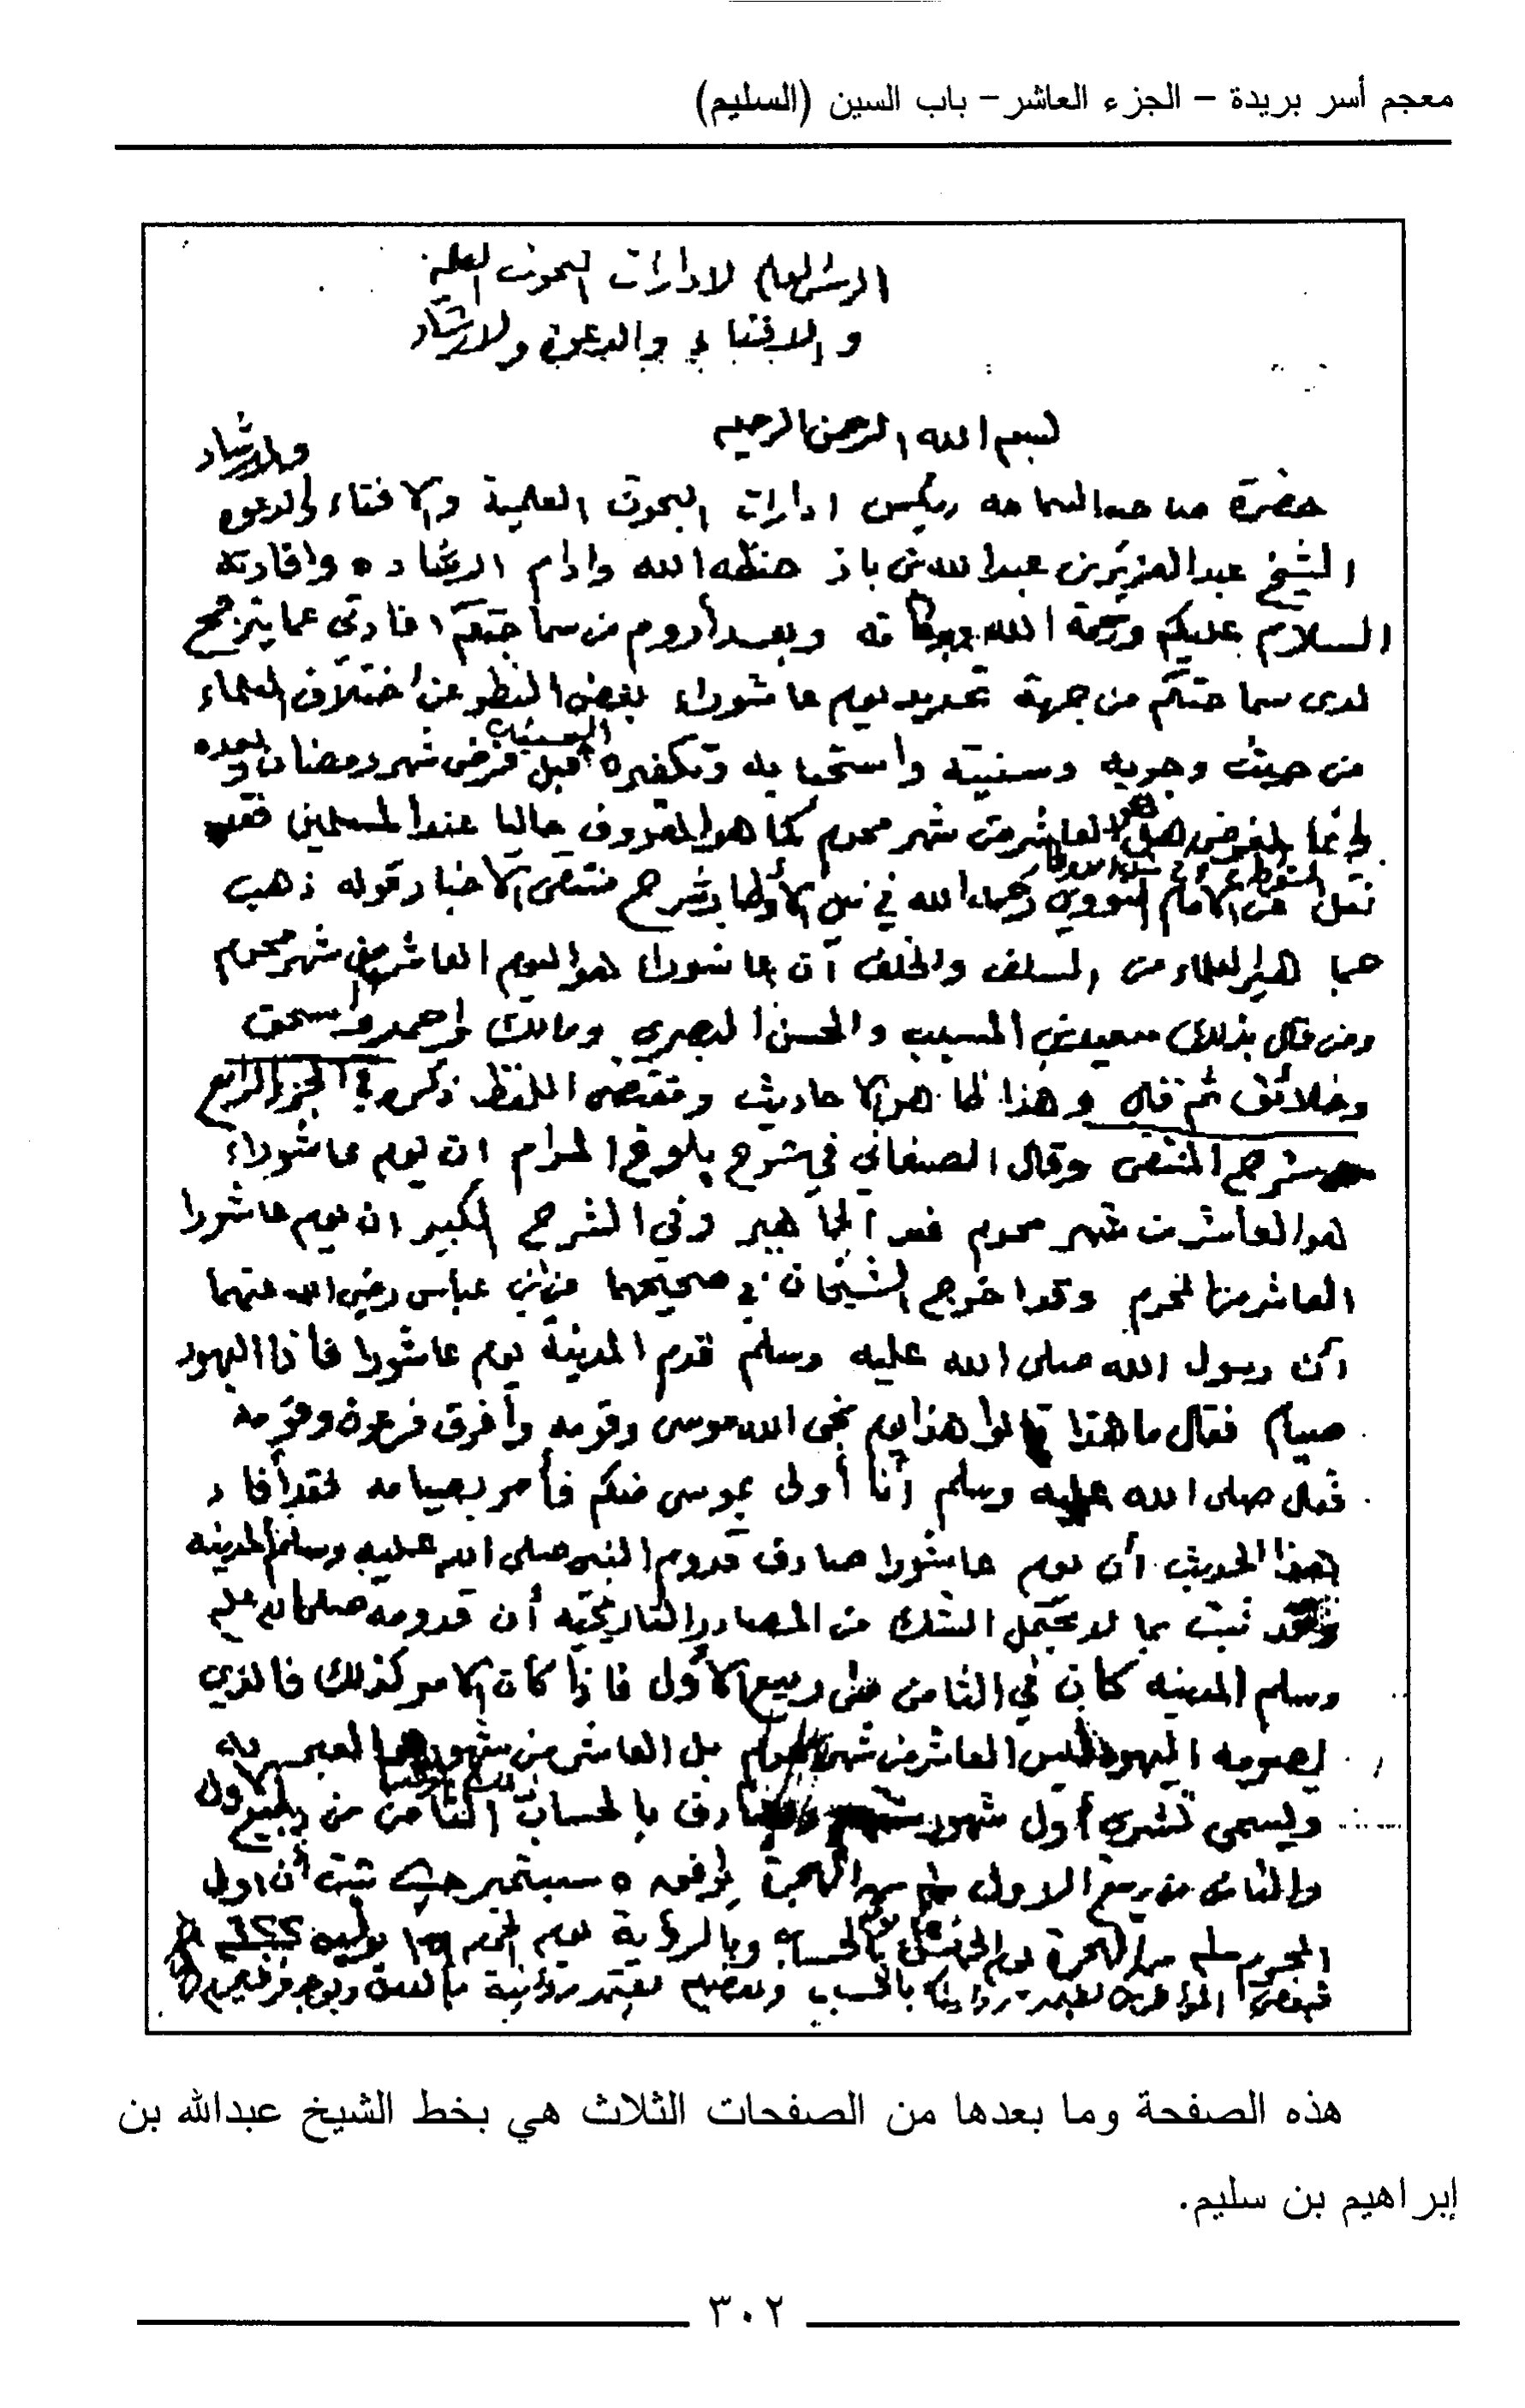 معجم أسر بريدة – الجزء العاشر– باب السين (السليم)
الرئيس العام لادارات البحوث العلمية
والافتاء والدعوة والارشاد
بسم الله الرحمن الرحيم
والارشاد
حضرة صاحب السماحه رئيس ادارات البحوث العلمية والافتاء والدعوه
الشيخ عبدالعزيز بن عبدالله بن باز حفظه الله وادام ارشاده وافادته
السلام عليكم ورحمة الله وبركاته وبعد أروم من سماحتكم افادتي عما يترجح
لدى سماحتكم من جهة تحديد يوم عاشوراء بغض النظر عن اختلاف العلماء
من حيث وجوبه وسنيته واستحبابه وتكفيره السيئات قبل فرض شهر رمضان وبعده
وانما الغرض هل هو العاشر من شهر محرم كما هو المعروف حاليا عند المسلمين فقد
نقل عن الامام النووي رحمه الله في نيل الأوطار شرح منتقى الاخبار قوله ذهب
جماهير العلماء من السلف والخلف أن عاشوراء هو اليوم العاشر من شهر محرم
وممن قال بذلك سعيد بن المسيب والحسن البصري ومالك واحمد واسحق
وخلائق ثم قال وهذا ظاهر الاحاديث ومقتضى اللفظ ذكره في الجزء الرابع
شرح المنتقى وقال الصنعاني في شرح بلوغ المرام ان يوم عاشوراء
هو العاشر من شهر محرم عند الجماهير وفي الشرح الكبير ان يوم عاشورا
العاشر من المحرم وكذا خرج الشيخان في صحيحهما عن ابن عباس رضي الله عنهما
أن رسول الله صلى الله عليه وسلم قدم المدينة يوم عاشورا فاذا اليهود
صيام فقال ما هذا قالوا هذا يوم نجى الله موسى وقومه وأغرق فرعون وقومه
فقال صلى الله عليه وسلم أنا أولى بموسى منكم فأمر بصيامه لقد أفاد
هذا الحديث أن يوم عاشورا صادف قدوم النبي صلى الله عليه وسلم المدينه
وقد ثبت بما لا يحتمل الشك من المصادر التاريخيه أن قدومه صلى الله عليه
وسلم المدينه كان في الثامن من ربيع الأول فاذا كان الامر كذلك فالذي
يصومه اليهود ليس العاشر من شهر محرم بل العاشر من شهور
ويسمى تشري أول شهور بالحساب الثامن من ربيع الأول
والثامن من ربيع الاول من الهجرة يوافقه ٥ سبتمبر حيث ثبت أن اول
المحرم من الهجرة يوم الخميس بالحساب وبالرؤية يوم يوليه ٦٢٢
هذه الصفحة وما بعدها من الصفحات الثلاث هي بخط الشيخ عبدالله بن
إبراهيم بن سليم.
٣٠٢